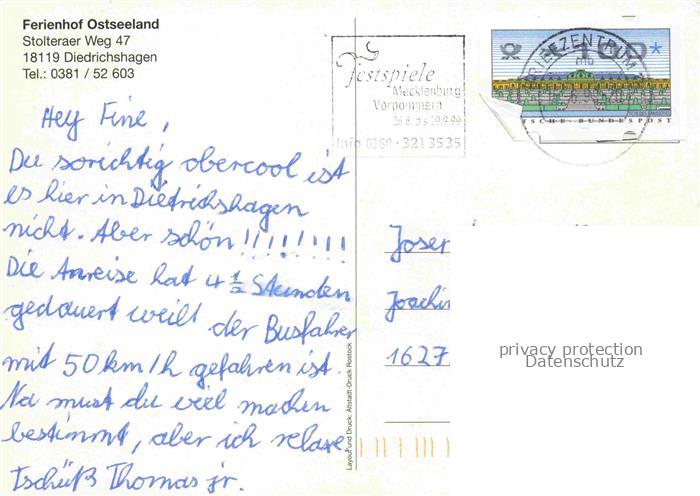 Ferienhof Ostseeland
Stolteraer Weg 47
18119 Diedrichshagen
Tel.: 0381 / 52 603
Festspiele
Mecklenburg
Vorpommern
Info 0180 · 321 3535
BRIEFZENTRUM
mb
100*
TSCHE · BUNDESPOST
Hey Fine,
Du sorichtig obercool ist
es hier in Diedrichshagen
nicht. Aber schön!!!!!!!!
Die Anreise hat 4 1/2 Stunden
gedauert weilt der Busfahrer
mit 50 km/h gefahren ist.
Na must du viel machen
bestimmt, aber ich relaxe
Tschüß Thomas jr.
Layout und Druck: Altstadt-Druck Rostock
Joser
Joachi
1627
privacy protection
Datenschutz